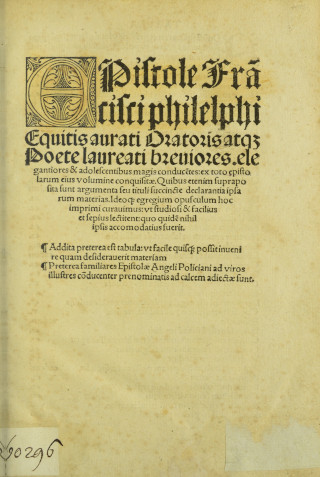 Epistole Frā
cisci philelphi
Equitis aurati Oratoris atqꝫ
Poete laureati breuiores. ele
gantiores & adolescentibus magis conducētes: ex toto episto
larum eius volumine conquisitæ. Quibus etenim suprapo
sita sunt argumenta seu tituli succincte declarantia ipsa
rum materias. Ideoqꝫ egregium opusculum hoc
imprimi curauimus: vt studiosi & facilius
et sepius lectitent: quo quidē nihil
ipsis accomodatius fuerit.
¶ Addita preterea est tabula: vt facile quisqꝫ possit inueni
re quam desiderauerit materiam
¶ Preterea familiares Epistolæ Angeli Policiani ad viros
illustres cōducenter prenominatis ad calcem adiectæ sunt.
60296